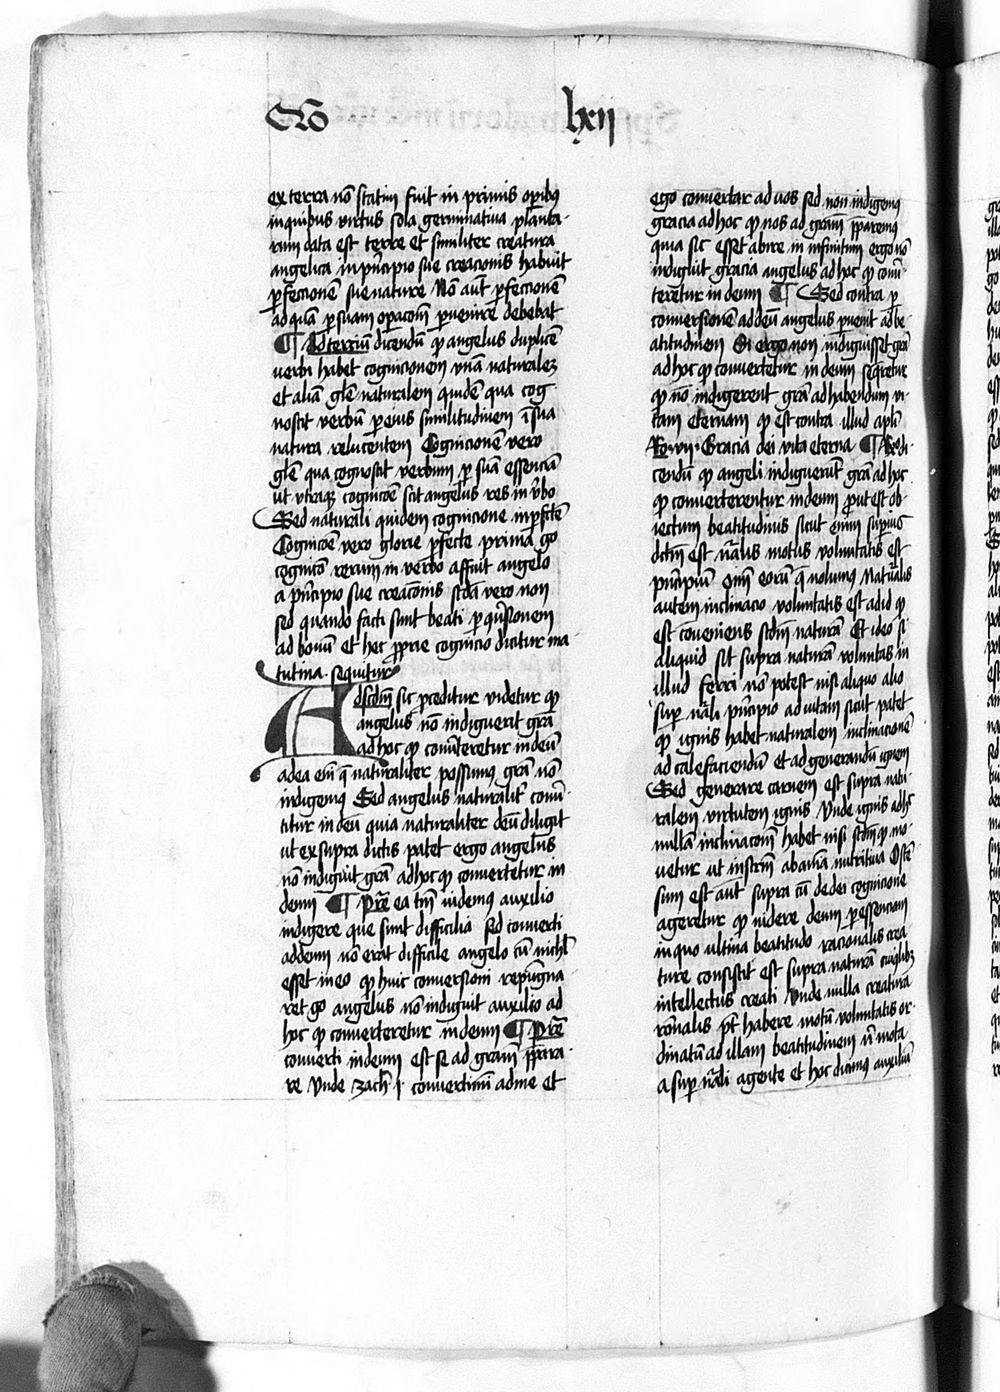 Qo lxii
ex terra nō statim fuit in primis op̄ibus
in quibus virtus sola germinatiua planta-
rum data est terre et similiter creatura
angelica in pn̄cipio sue creacionis habuit
ꝑfeccionē sue nature Nō aūt ꝑfeccionē
ad quā ꝑ suam oꝑacōm ꝑuenire debebat
¶ Ad terciū dicendū ꝙ angelus duplicē
verbi habet cognicionem vnā naturalē
et aliam gl̄e naturalem quidē qua cog
noscit verbū ꝑ eius similitudinem ī sua
natura relucentem Cognicionē vero
gl̄e qua cognoscit verbum ꝑ suā essenciā
ut vtraqꝫ cognicōe scit angelus res in v̄bo
Sed naturali quidem cognicione inꝑfc̄te
Cognicōe vero glorie ꝑfecte prima go
cognicō rerum in verbo affuit angelo
a pn̄cipio sue creacōnis scd̄a vero non
sed quando facti sunt beati ꝑ ꝯūsionem
ad bonū et hec ꝓprie cognicio dicitur ma
tutina sequitur
Ad scd̄m sic ꝓceditur videtur ꝙ
angelus nō indiguerit grā
ad hoc ꝙ conūteretur in deū
ad ea em̄ q̄ naturaliter possumꝰ grā nō
indigemꝰ Sed angelus naturalit̄ conū-
titur in deū quia naturaliter deū diligit
ut ex supra dictis patet ergo angelus
nō indiguit grā ad hoc ꝙ conuertetur in
deum ¶ Pret̄ ea tm̄ videmꝰ auxilio
indigere que sunt difficilia sed conuerti
ad deum nō erat difficile angelo cū nichl̄
esset in eo ꝙ huic conuersioni repugna-
ret go angelus nō indiguit auxilio ad
hoc ꝙ conuerteretur in deum ¶ Pret̄
conuerti in deum est se ad gram̄ p̄para-
re Vnde zach̄ i conuertimī ad me et
ego conuertar ad uos sed non indigemꝰ
gracia ad hoc ꝙ nos ad gram̄ p̄paremꝰ
quia sic esset abire in infinitum ergo nō
indiguit gracia angelus ad hoc ꝙ conū-
teretur in deum ¶ Sed contra ꝑ
conuersionē ad deū angelus ꝑuenit ad be-
atitudinem Si ergo non indiguisset grā
ad hoc ꝙ conuertetur in deum seqretur
ꝙ nō indigerent grā ad habendum vi-
tam eternam ꝙ est contra illud apl̄i
Ro vi Gracia dei vita eterna ¶ Rō di-
cendū ꝙ angeli indiguerūt grā ad hoc
ꝙ conuerterentur in deum ꝓut est ob-
iectum beatitudinis sicut enim suꝑius
dictm̄ est nr̄alis motus voluntatis est
pn̄cipiū om̄i eorū q̄ volumꝰ Naturalis
autem inclinacio voluntatis est ad id ꝙ
est coueniens scdm̄ naturā Et ideo si
aliquid sit supra naturā voluntas in
illud ferri nō potest nisi aliquo alio
suꝑ nāli pn̄cipio adiutam sicut patet
ꝙ ignis habet naturalem inclinacionē
ad calefaciendū et ad generandū ignem
Sed generare carnem est supra natu-
ralem virtutem ignis Vnde ignis ad hc̄
nullā inclinacōm̄ habet nisi scdm̄ ꝙ mo-
uetur ut instrm̄ ab anīa nutritiua Ostē
sum est aūt supra cū de dei cognicione
ageretur ꝙ videre deum ꝑ essenciam
in quo ultima beatitudo racionalis crea-
ture consistit est supra naturā cuiuslibꝫ
intellectus creati Vnde nulla creatura
rōnalis pt̄ habere motū voluntatis or-
dinatū ad illam beatitudinem n̄ mota
a suꝑ nāli agente et hoc dicimꝰ auxiliū